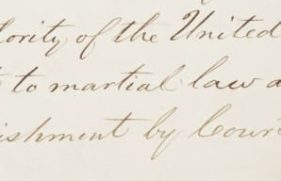 lority of the United
to martial law a
ishment by Cour